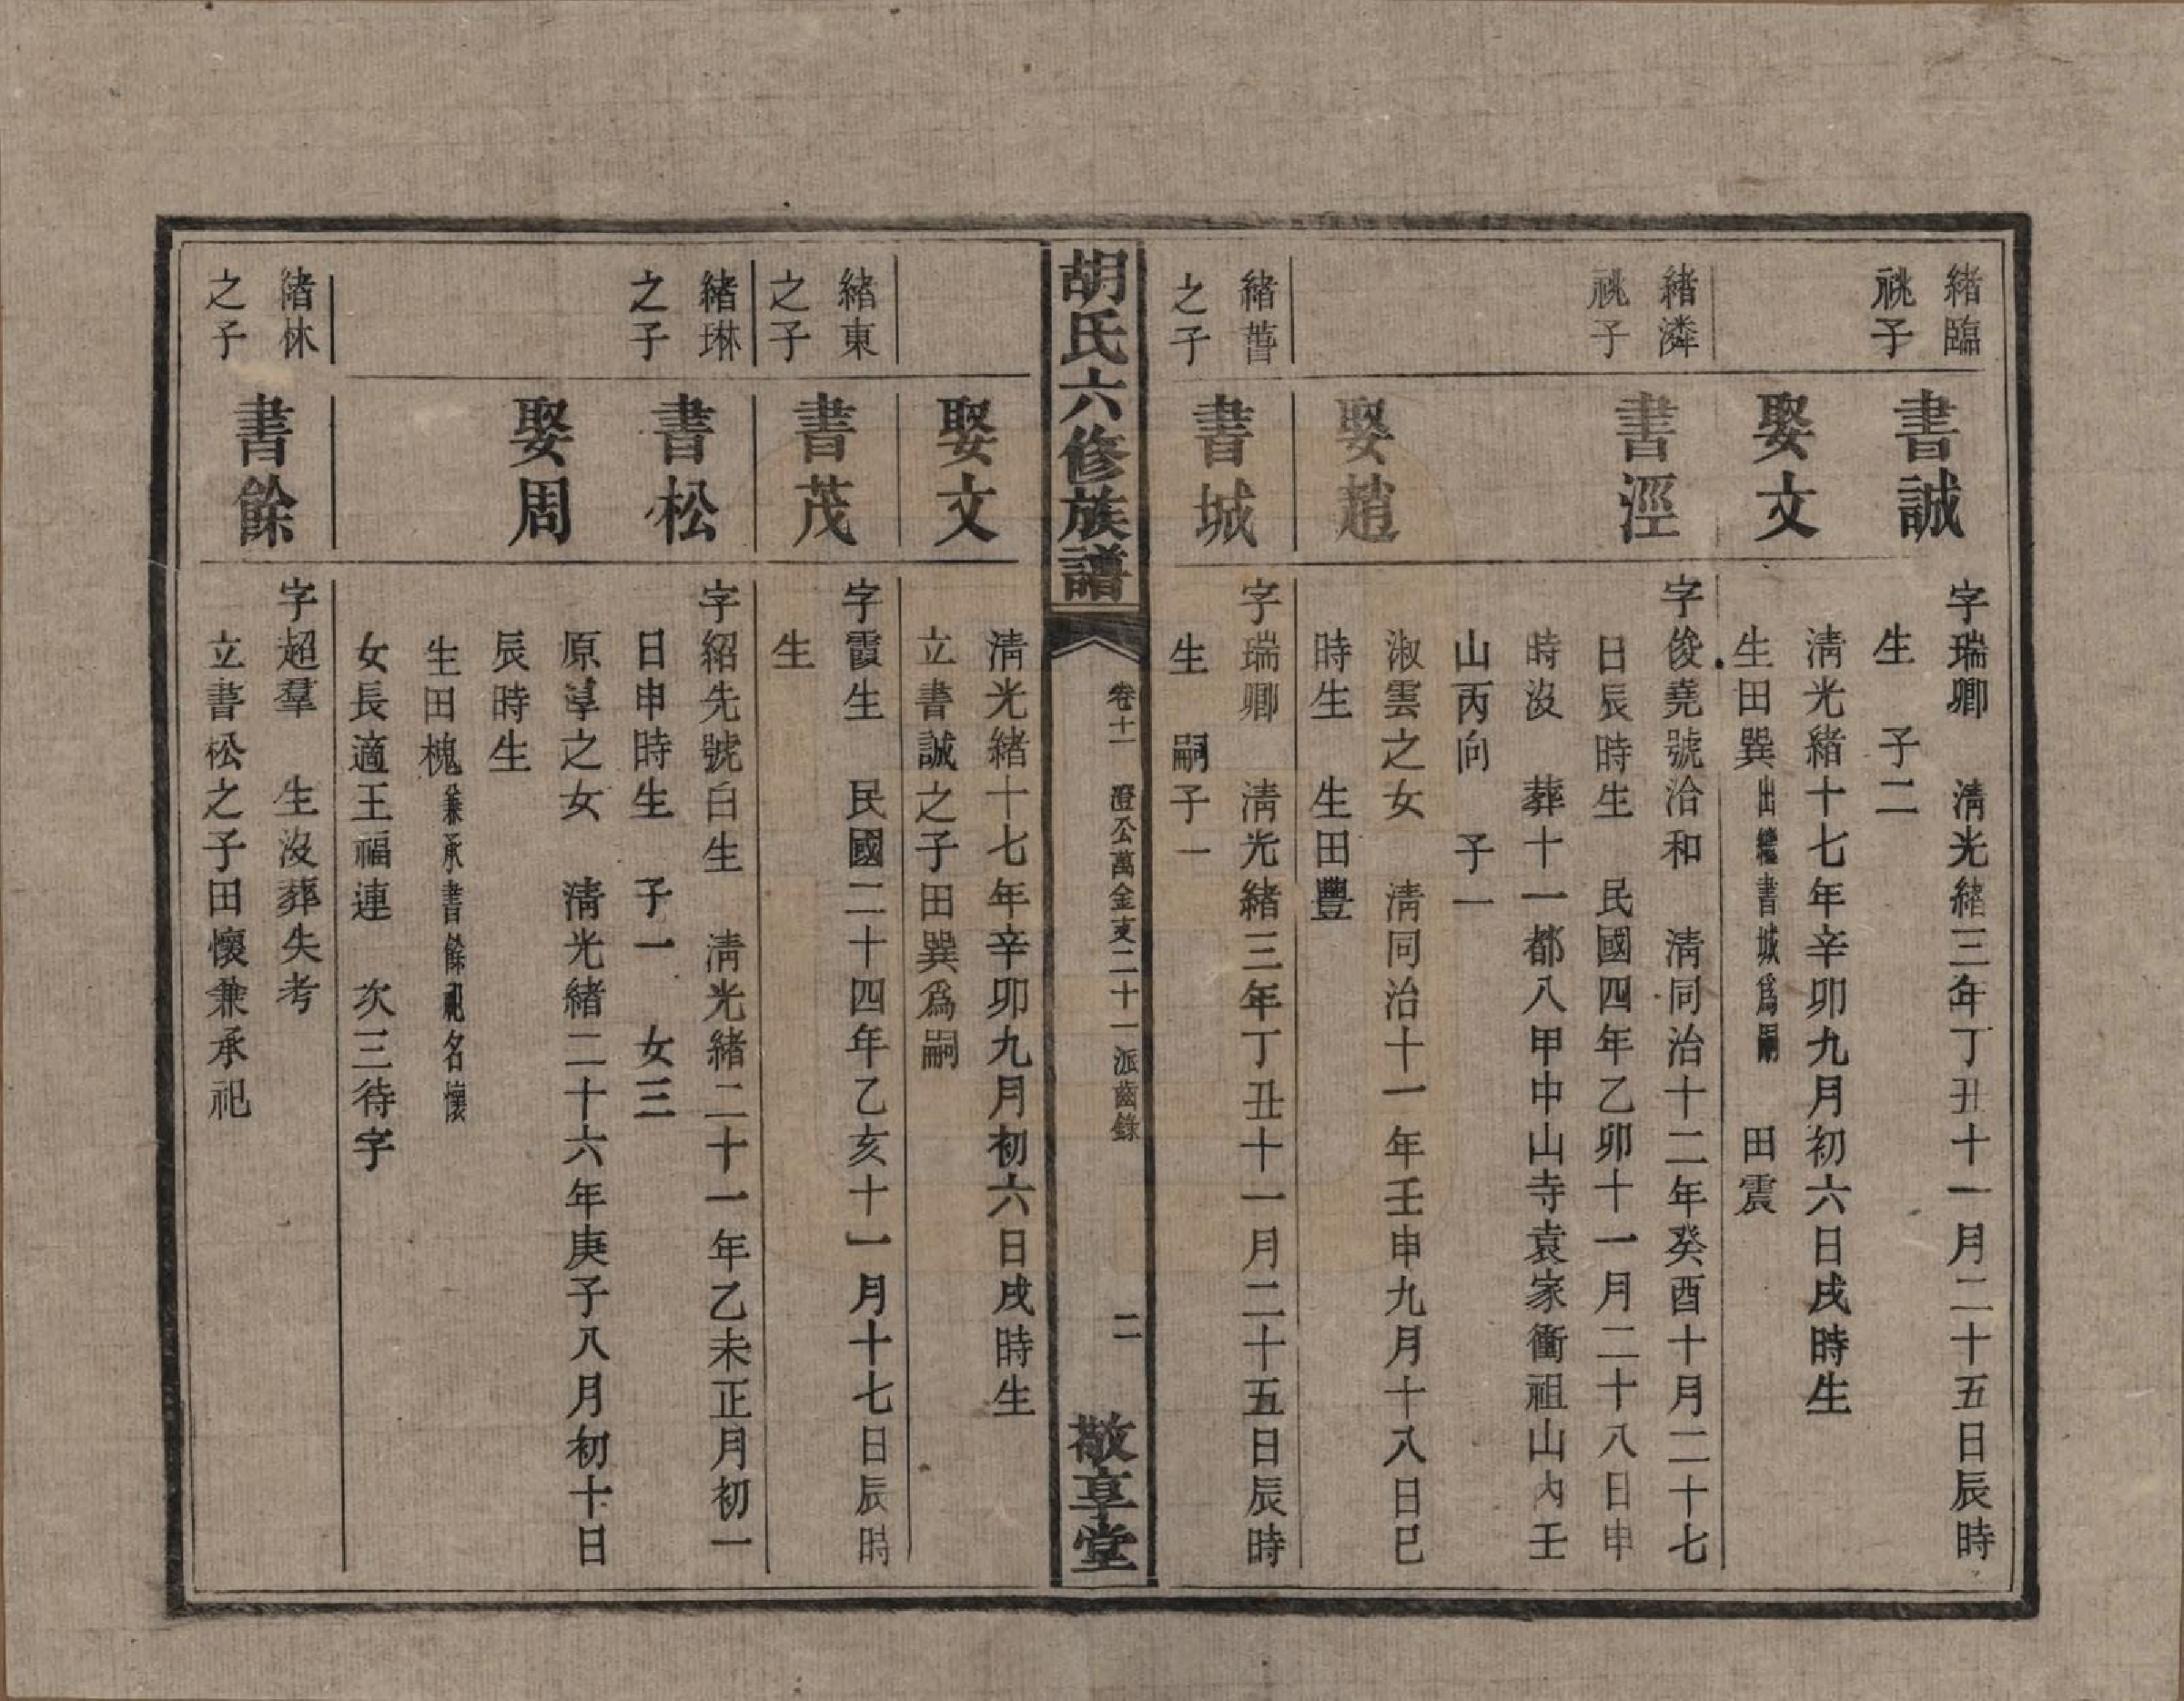 緒臨
祧子
書誠
字瑞卿　淸光緒三年丁丑十一月二十五日辰時
生　子二
娶文
淸光緒十七年辛卯九月初六日戌時生
生田巽出繼書城爲嗣　田震
緒潾
祧子
書涇
字俊堯號洽和　淸同治十二年癸酉十月二十七
日辰時生　民國四年乙卯十一月二十八日申
時沒　葬十一都八甲中山寺袁家衝祖山內壬
山丙向　子一
娶趙
淑雲之女　淸同治十一年壬申九月十八日巳
時生　生田豐
緒蓸
之子
書城
字瑞卿　淸光緒三年丁丑十一月二十五日辰時
生　嗣子一
胡氏六修族譜
卷十一　澄公萬金支二十一派齒錄
二
敬享堂
娶文
淸光緒十七年辛卯九月初六日戌時生
立書誠之子田巽爲嗣
緒東
之子
書茂
字霞生　民國二十四年乙亥十一月十七日辰時
生
緒琳
之子
書松
字紹先號白生　淸光緒二十一年乙未正月初一
日申時生　子一　女三
娶周
原淳之女　淸光緒二十六年庚子八月初十日
辰時生
生田槐兼承書餘祀名懷
女長適王福連　次三待字
緒林
之子
書餘
字超羣　生沒葬失考
立書松之子田懷兼承祀